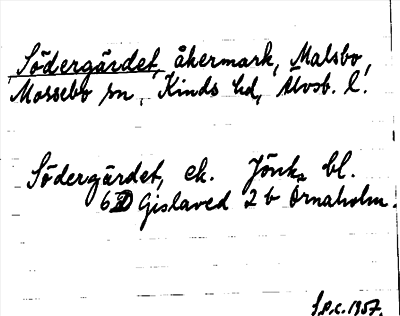 Södergärdet, åkermark, Malsbo,
Mossebo sn, Kinds hd, Älvsb. l.
Södergärdet, ek. Jönk. bl.
6D Gislaved 2b Örnaholm.
1957.